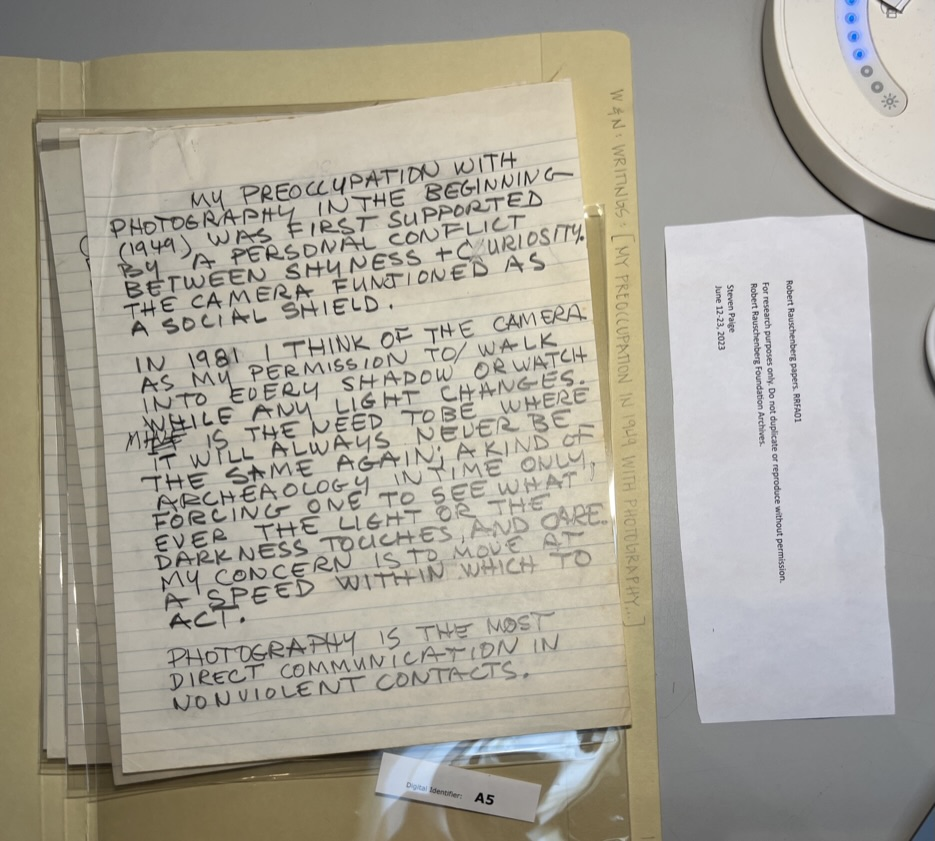 MY PREOCCUPATION WITH
PHOTOGRAPHY IN THE BEGINNING
(1949) WAS FIRST SUPPORTED
BY A PERSONAL CONFLICT
BETWEEN SHYNESS + CURIOSITY.
THE CAMERA FUNTIONED AS
A SOCIAL SHIELD.
IN 1981 I THINK OF THE CAMERA
AS MY PERMISSION TO WALK
INTO EVERY SHADOW OR WATCH
WHILE ANY LIGHT CHANGES.
MINE IS THE NEED TO BE WHERE
IT WILL ALWAYS NEVER BE
THE SAME AGAIN; A KIND OF
ARCHEAOLOGY IN TIME ONLY,
FORCING ONE TO SEE WHAT
EVER THE LIGHT OR THE
DARKNESS TOUCHES, AND CARE.
MY CONCERN IS TO MOVE AT
A SPEED WITHIN WHICH TO
ACT.
PHOTOGRAPHY IS THE MOST
DIRECT COMMUNICATION IN
NONVIOLENT CONTACTS.
W & N: WRITINGS: [MY PREOCCUPATION IN 1949 WITH PHOTOGRAPHY...]
Robert Rauschenberg papers. RRFA01
For research purposes only. Do not duplicate or reproduce without permission.
Robert Rauschenberg Foundation Archives.
Steven Paige
June 12-23, 2023
Digital Identifier: A5